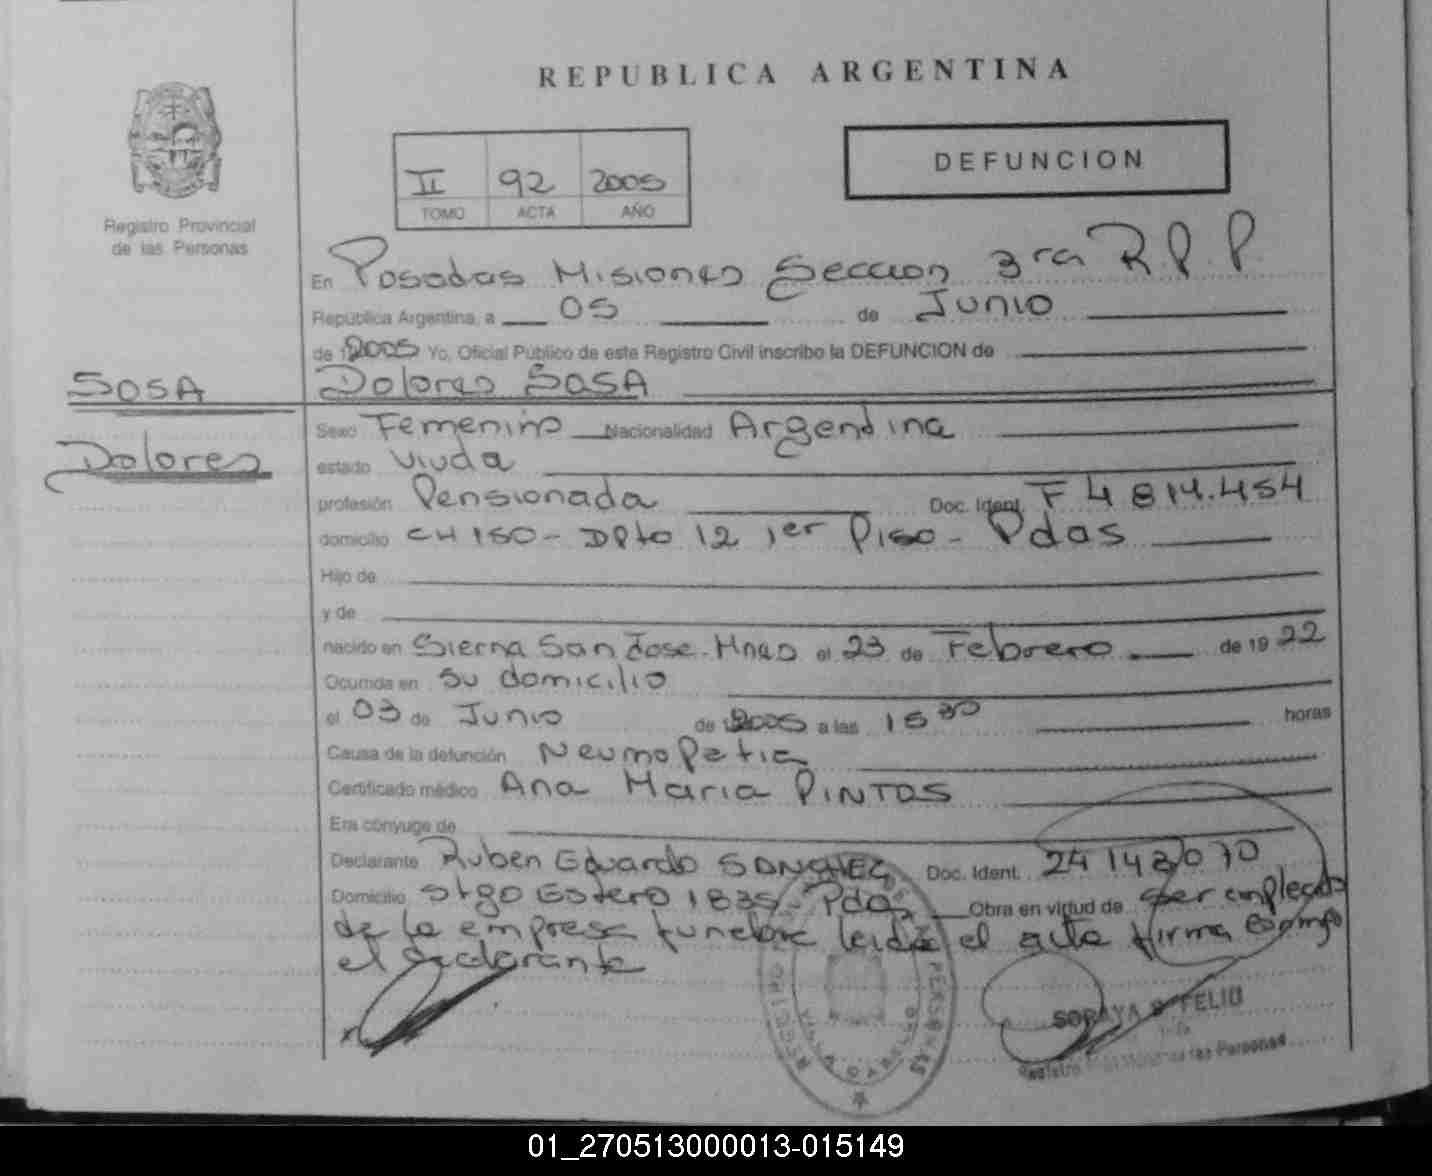 REPUBLICA ARGENTINA
Registro Provincial
de las Personas
II 92 2005
TOMO ACTA AÑO
DEFUNCION
En Posadas Misiones Seccion 3ra R.P.P
República Argentina, a 05 de Junio
de 2005 Yo, Oficial Público de este Registro Civil inscribo la DEFUNCION de
SOSA
Dolores
Dolores SOSA
Sexo Femenino Nacionalidad Argentina
estado Viuda
profesión Pensionada Doc. Ident. F 4 814.454
domicilio CH 150 - Dpto 12 1er Piso - Pdas
Hijo de
y de
nacido en Sierra San Jose - Mnes el 23 de Febrero de 1922
Ocurrida en su domicilio
el 03 de Junio de 2005 a las 15 30 horas
Causa de la defunción Neumopatia
Certificado médico Ana Maria PINTOS
Era cónyuge de
Declarante Ruben Eduardo Doc. Ident. 24 143 070
Domicilio Stgo Estero 1835 Pdas Obra en virtud de ser empleado
de la empresa funebre leida el acta firma
el declarante
SORAYA FELIU
Registro de las Personas
REGISTRO PERSONAS
VILLA CABELLO
01_270513000013-015149